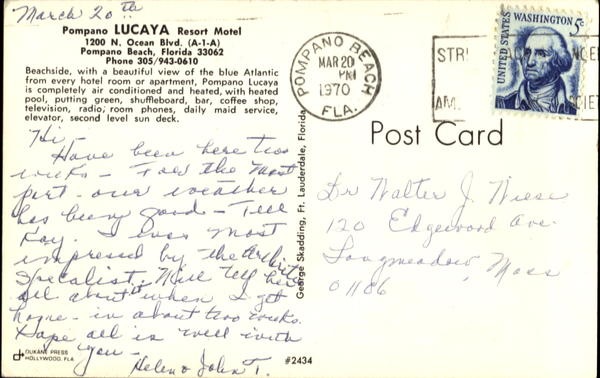 March 20th
Pompano LUCAYA Resort Motel
1200 N. Ocean Blvd. (A-1-A)
Pompano Beach, Florida 33062
Phone 305/943-0610
Beachside, with a beautiful view of the blue Atlantic
from every hotel room or apartment, Pompano Lucaya
is completely air conditioned and heated, with heated
pool, putting green, shuffleboard, bar, coffee shop,
television, radio, room phones, daily maid service,
elevator, second level sun deck.
Hi-
Have been here two
weeks - For the most
part - our weather
has been good - Tell
Kay. I was most
impressed by the Arthritis
Specialist. Will tell her
all about it when I get
home - in about two weeks.
Hope all is well with
you -
Helen & John T.
DUKANE PRESS
HOLLYWOOD, FLA.
#2434
George Skadding, Ft. Lauderdale, Florida
POMPANO BEACH
MAR 20
PM
1970
FLA.
STRI
AM.
UNITED STATES
WASHINGTON 5c
Post Card
Dr Walter J. Wiese
120 Edgewood Ave.
Longmeadow, Mass
01106